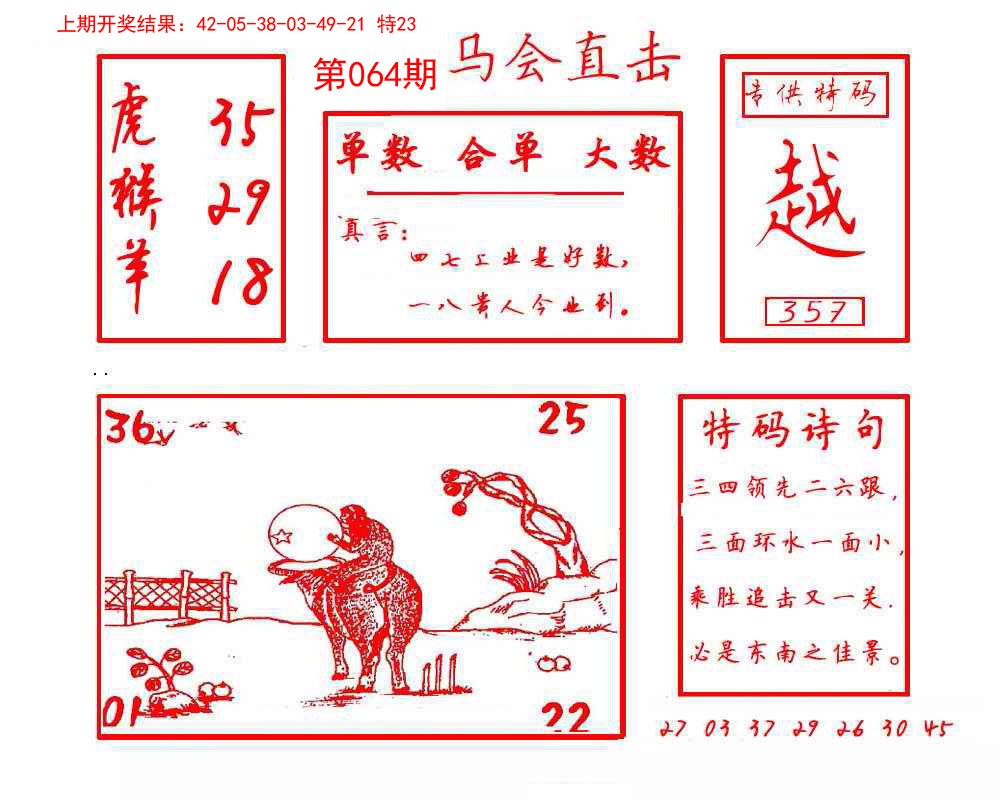 上期开奖结果：42-05-38-03-49-21 特23
第064期 马会直击
虎 35
猴 29
羊 18
单数 合单 大数
真言：
四七工业是好数，
一八贵人今业到。
专供特码
越
357
36
25
01
22
特码诗句
三四领先二六跟，
三面环水一面小，
乘胜追击又一关.
必是东南之佳景。
27 03 37 29 26 30 45